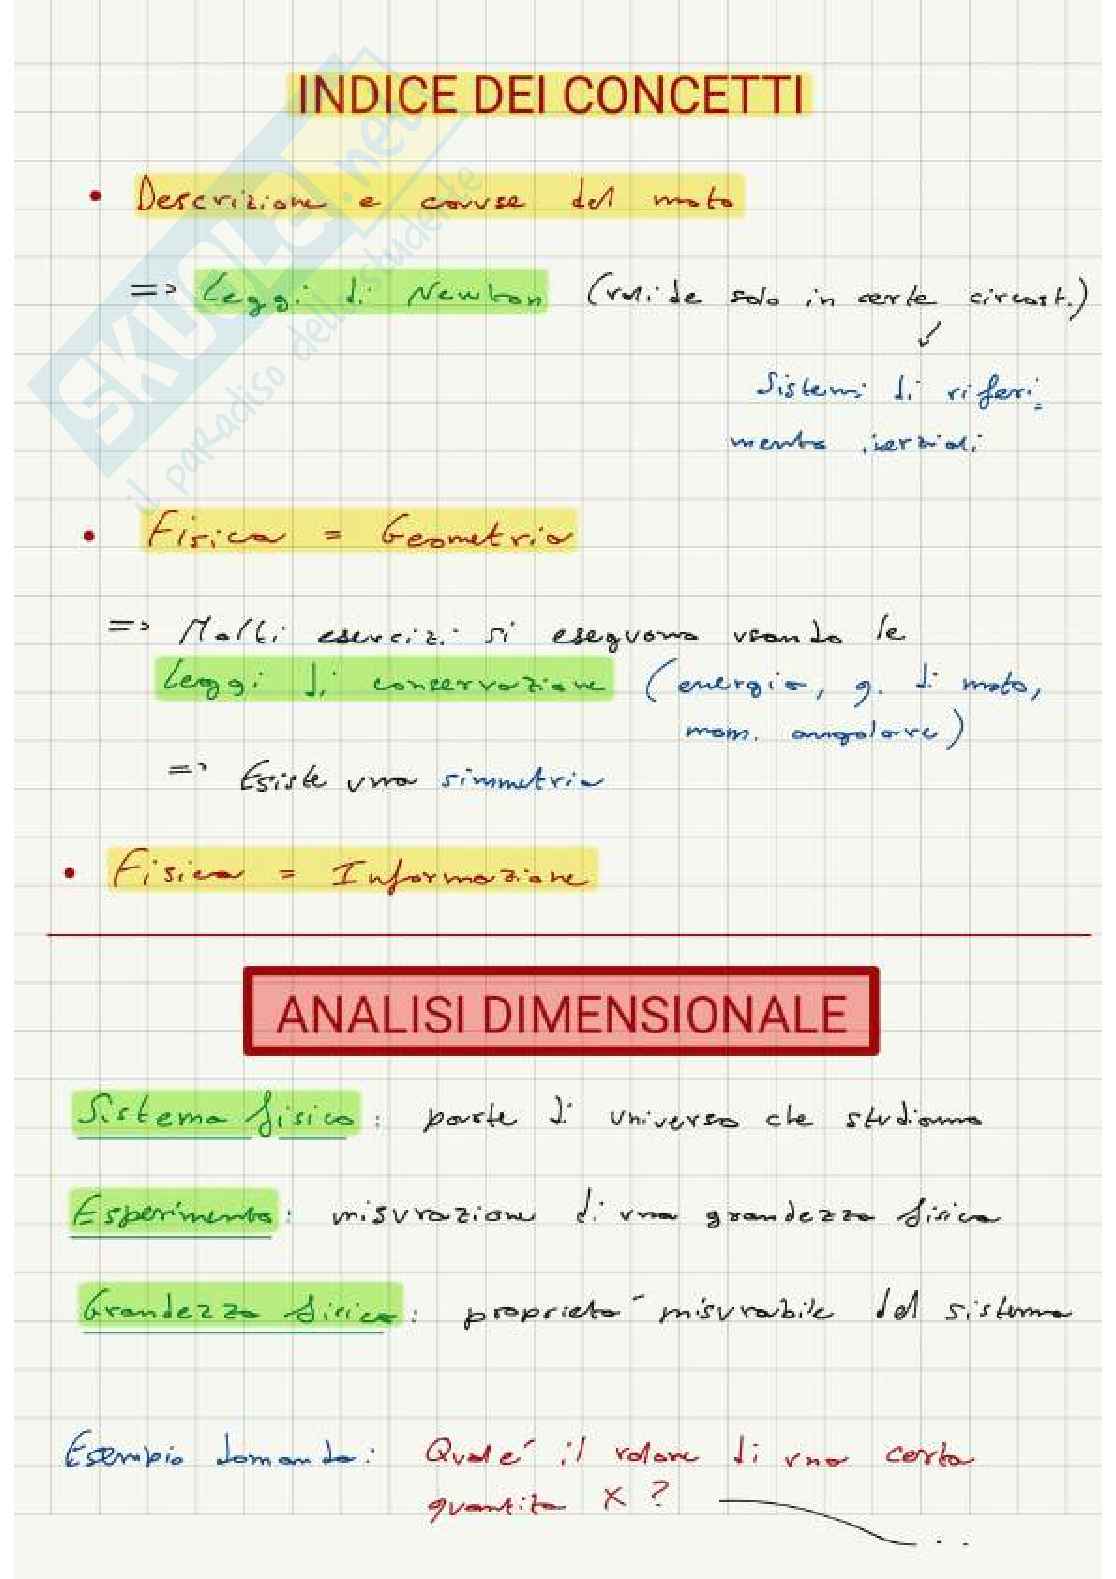 INDICE DEI CONCETTI
• Descrizione e cause del moto
=> Leggi di Newton (valide solo in certe circost.)
Sistemi di riferi=
mento inerziali
• Fisica = Geometria
=> Molti esercizi si eseguono usando le
Leggi di conservazione (energia, q. di moto,
mom. angolare)
=> Esiste una simmetria
• Fisica = Informazione
ANALISI DIMENSIONALE
Sistema fisico: parte di universo che studiamo
Esperimento: misurazione di una grandezza fisica
Grandezza fisica: proprietà misurabile del sistema
Esempio domanda: Qual é il valore di una certa
quantità X ? ...
SKUOLA.net
il paradiso dello studente